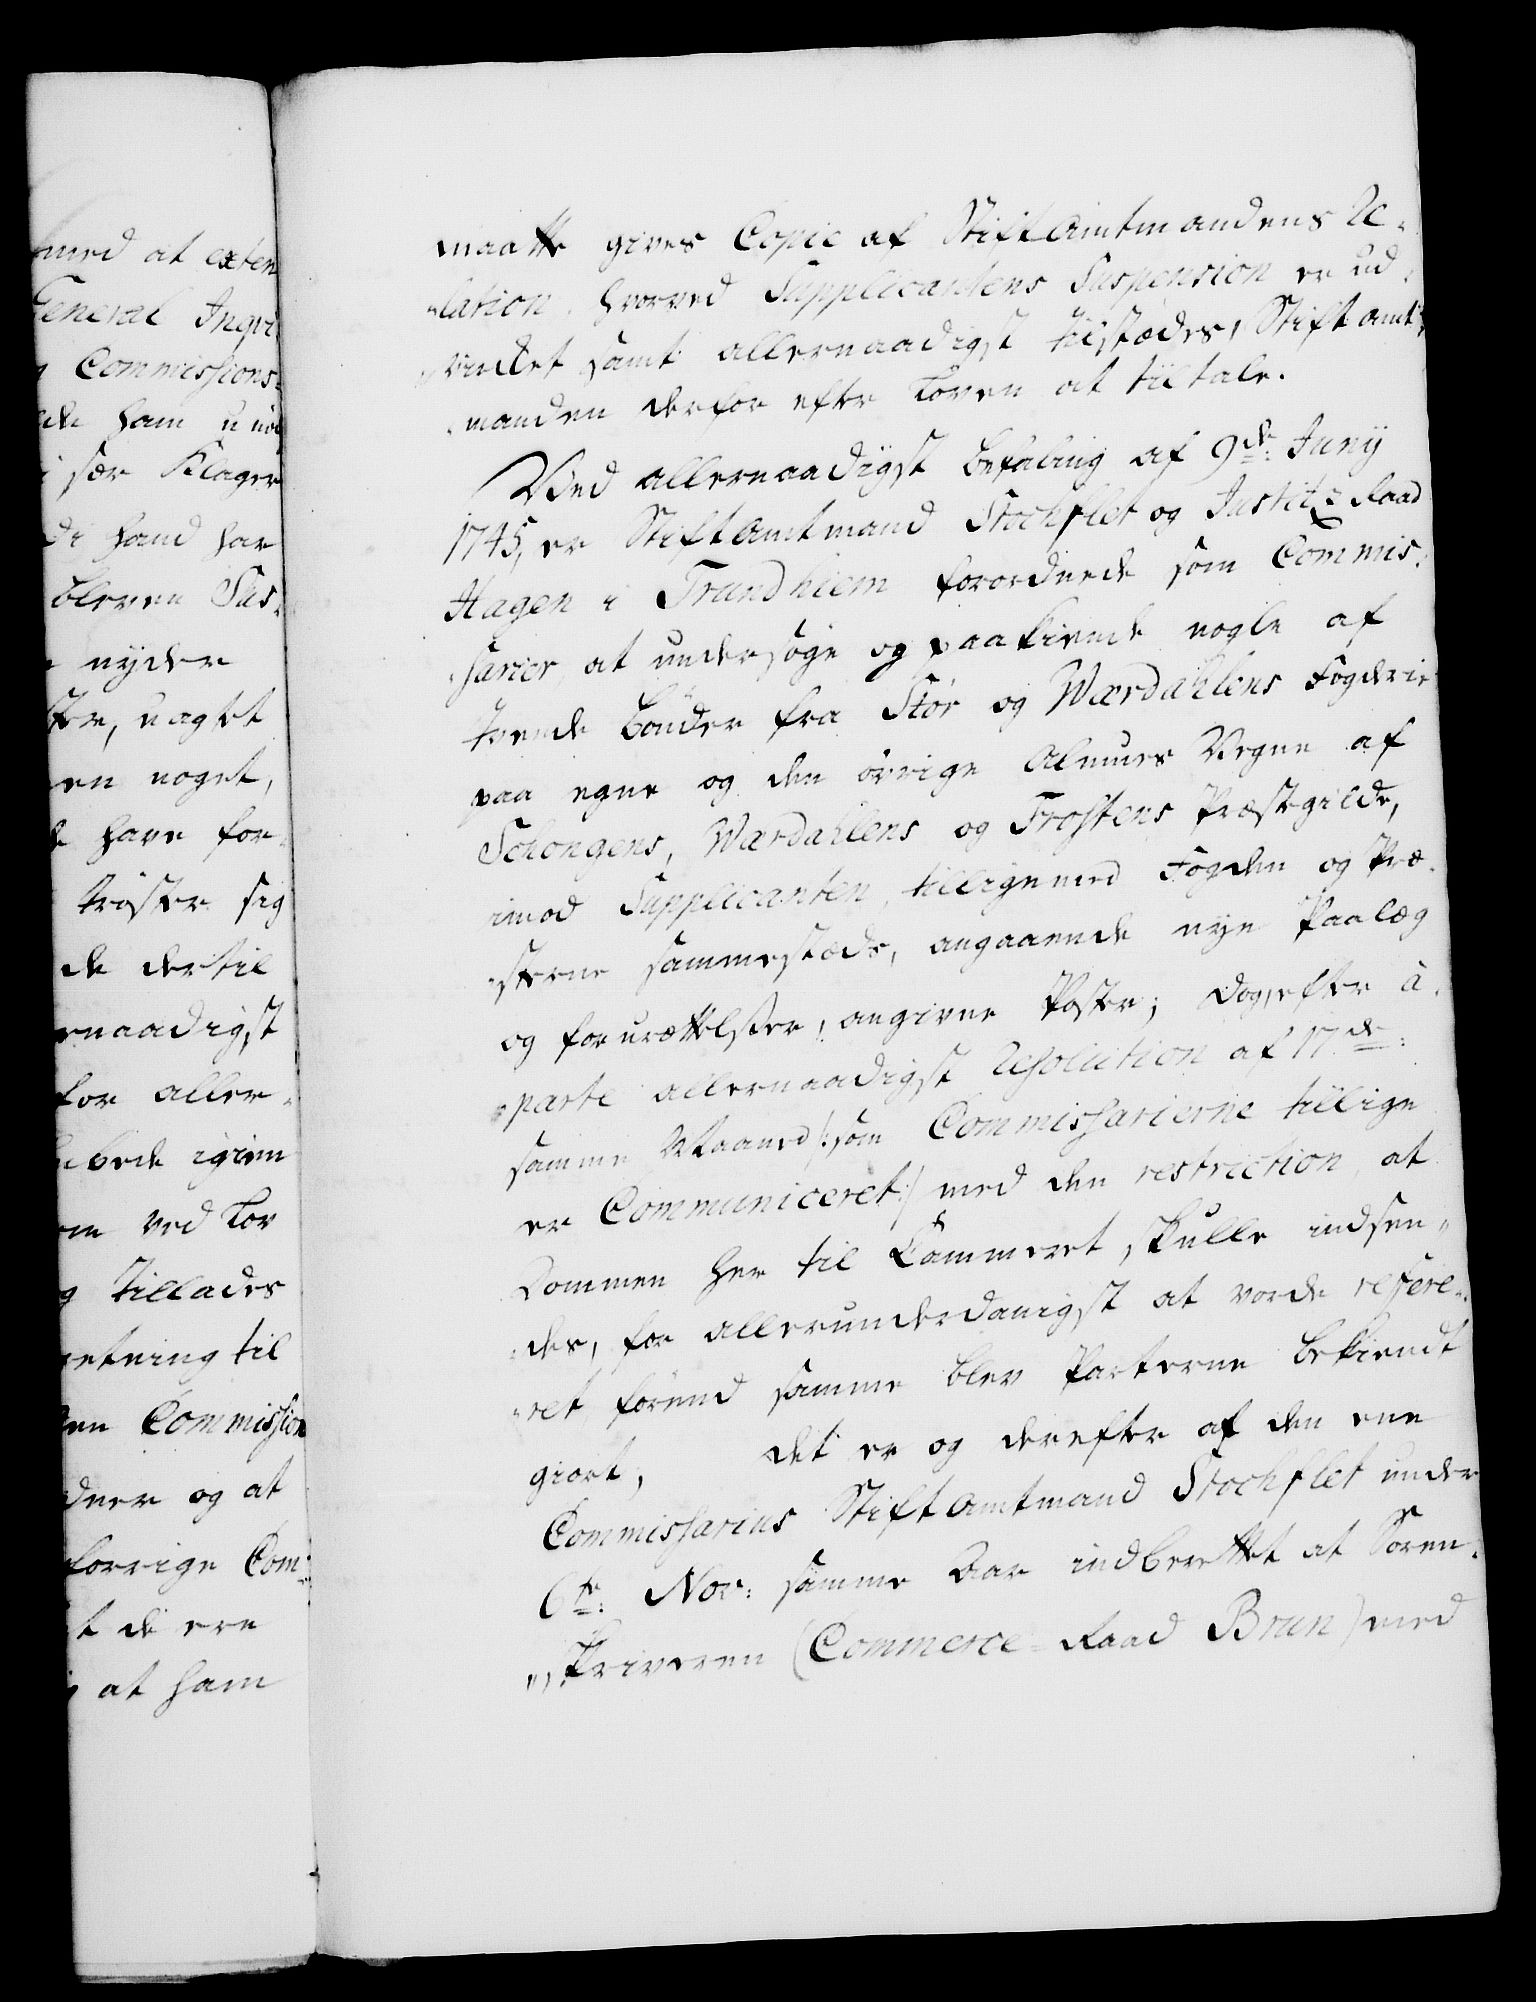 med at exten
General Inqvi
Commissions-
ham unød
sær Klager
di hand har
bleven Sus-
nyder
uagtet
en noget,
have for-
trøster sig
de dertil
ernaadigst
for aller-
igien
ved Lov
tillades
retning til
en Commission
og at
forrige Com-
t de ere
at ham
maatte gives Copie af StiftAmtmandens Re-
-lation, hvorved Supplicantens Suspension er ud-
-virket samt allernaadigst tilstædes, StiftAmt-
-manden derfor efter Loven at tiltale.
Ved allernaadigst Befaling af 9de: Junÿ
1745, er StiftAmtmand Stockflet og Justitz Raad
Hagen i Trundhiem forordnede som Commis-
-sarier, at undersøge og paakiende nogle af
tvende Bønder fra Stør og Wærdahlens Fogderie
paa egne og den øvrige Almues Vegne af
Schongens, Wærdahlens og Frostens Præstegilde,
imod Supplicanten, tilligemed Fogden og Præ-
-sterne sammestæds, angaaende nye Paalæg
og forurættelser, angivne Poster; dog, efter à
parte allernaadigst Resolution af 17de:
samme Maaned /: som Commissarierne tillige
er Communiceret :/ med den restriction, at
Dommen her til Cammeret, skulle indsen-
-des, for allerunderdanigst at vorde refere-
-ret førend samme blev Parterne bekiendt
giort; det er og derefter af den ene
Commissarius StiftAmtmand Stockflet under
6te: Nov: samme Aar indberettet at Soren-
-skriveren (Commerce-Raad Brun) med